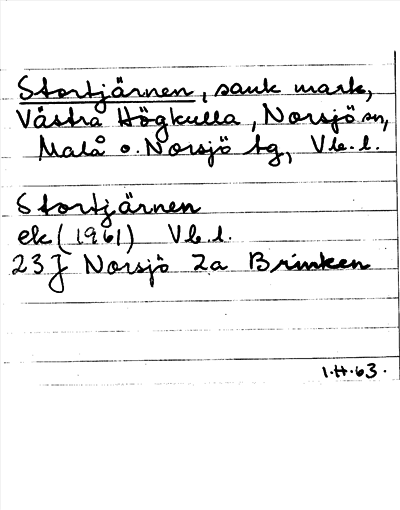 Stortjärnen, sank mark,
Västra Högkulla, Norsjö sn,
Malå o. Norsjö tg, Vb. l.
Stortjärnen
ek (1961) Vb. l.
23J Norsjö 2a Brinken
1.H.63.